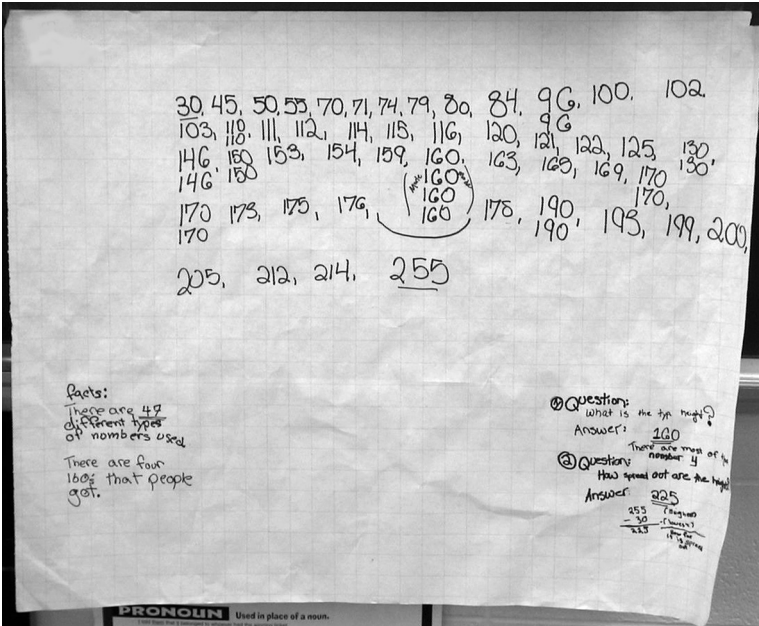 30, 45, 50, 55, 70, 71, 74, 79, 80, 84, 96, 100, 102
96
103, 110, 111, 112, 114, 115, 116, 120, 121, 122, 125, 130
110 130,
146, 150 153, 154, 159, 160, 163, 165, 169, 170
146 150 160 170,
160
170 173, 175, 176, 160 178, 190, 193, 199, 200,
170 190
205, 212, 214, 255
facts:
There are 47
different types
of numbers used
There are four
160s that people
got.
Question:
What is the typ height?
Answer: 160
There are most of
number 4
② Question:
How spread out are the heigh
Answer 225
255
- 30
225
PRONOUN Used in place of a noun.